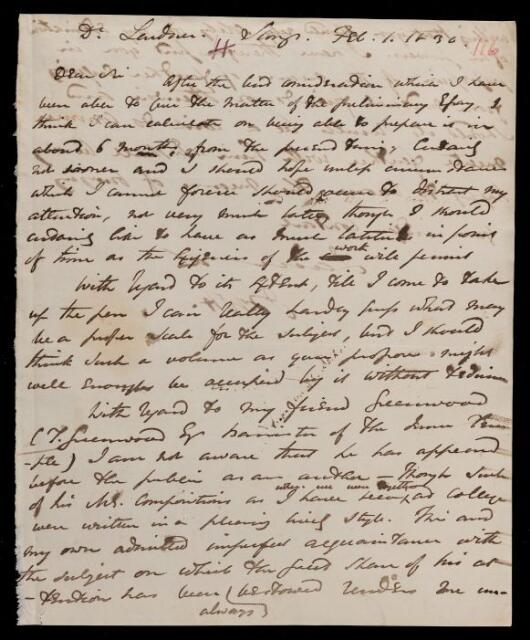 Dr Lardner. Slough. Feb. 1. 1830. 116
Dear Sir
After the best consideration which I have
been able to give the matter of the preliminary Essay, I
think I can calculate on being able to prepare it in
about 6 months, from the present time; certainly
not sooner and I should hope unless circumstances
which I cannot foresee should occur to distract my
attention, not very much later, though I should
certainly like to have as much latitude in point
of time as the exigencies of the work will permit
With regard to its extent, till I come to take
up the pen I can really hardly guess what may
be a proper scale for the subject, but I should
think such a volume as you propose might
well enough be occupied by it without tedium
With regard to my friend Greenwood
(T. Greenwood Esq barrister of the Inner Tem
-ple) I am not aware that he has appeared
before the public as an author - though such
of his MS. compositions as I have
when we were together at College
were written in a pleasing lively style. This and
my own admitted imperfect acquaintance with
the subject on which the great share of his at
-tention has been (bestowed renders me un
always)